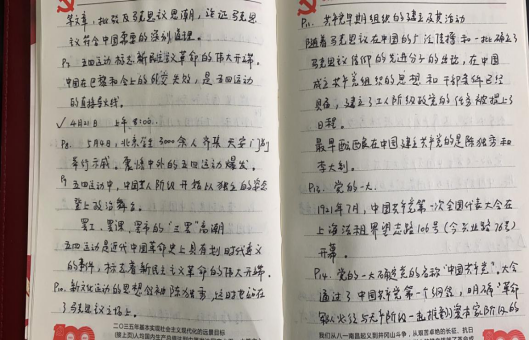 等文章，批驳反马克思主义思潮，论证马克思主
义符合中国需要的深刻道理。
P7. 五四运动标志新民主主义革命的伟大开端。
中国在巴黎和会上的外交失败，是五四运动
的直接导火线。
✓4月21日 上午 8:00.
P8. 5月4日，北京学生3000余人齐集天安门前
举行示威。震惊中外的五四运动爆发。
P9 五四运动中，中国工人阶级开始以独立的姿态
登上政治舞台。
罢工、罢课、罢市的"三罢"高潮
五四运动是近代中国革命史上具有划时代意义
的事件，标志着新民主主义革命的伟大开端。
P10. 新文化运动的思想领袖陈独秀，这时也站在
了马克思主义立场上。
二〇三五年基本实现社会主义现代化的远景目标
P11. 共产党早期组织的建立及其活动
随着马克思主义在中国的广泛传播和一批确立了
马克思主义信仰的先进分子的出现，在中国
成立共产党组织的思想和干部条件已经
具备，建立工人阶级政党的任务被提上了
日程。
最早酝酿在中国建立共产党的是陈独秀和
李大钊。
P13. 党的一大.
1921年7月，中国共产党第一次全国代表大会在
上海法租界望志路106号（今兴业路76号）
开幕。
P14. 党的一大确定党的名称"中国共产党"。大会
通过了中国共产党第一个纲领，明确"革命
军队必须与无产阶级一起推翻资本家阶级的
我们从八一南昌起义到井冈山斗争，从艰苦卓绝的长征、抗日